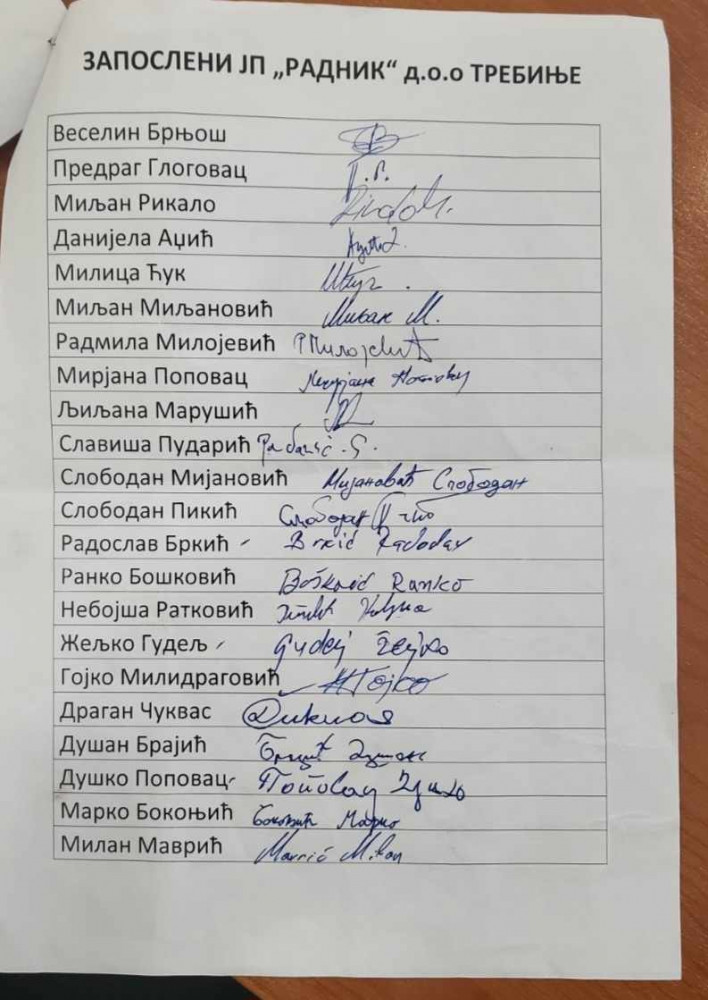 ЗАПОСЛЕНИ ЈП „РАДНИК“ д.о.о ТРЕБИЊЕ
Веселин Брњош
Предраг Глоговац П.Г.
Миљан Рикало
Данијела Аџић
Милица Ћук
Миљан Миљановић Миљан М.
Радмила Милојевић Р Милојевић
Мирјана Поповац Мирјана Поповац
Љиљана Марушић
Славиша Пударић
Слободан Мијановић Мијановић Слободан
Слободан Пикић Слободан
Радослав Бркић Brkić Radoslav
Ранко Бошковић Bošković Ranko
Небојша Ратковић
Жељко Гудељ Gudelj Željko
Гојко Милидраговић Гојко
Драган Чуквас
Душан Брајић Брајић Душан
Душко Поповац Поповац Душко
Марко Бокоњић Бокоњић Марко
Милан Маврић Mavrić Milan